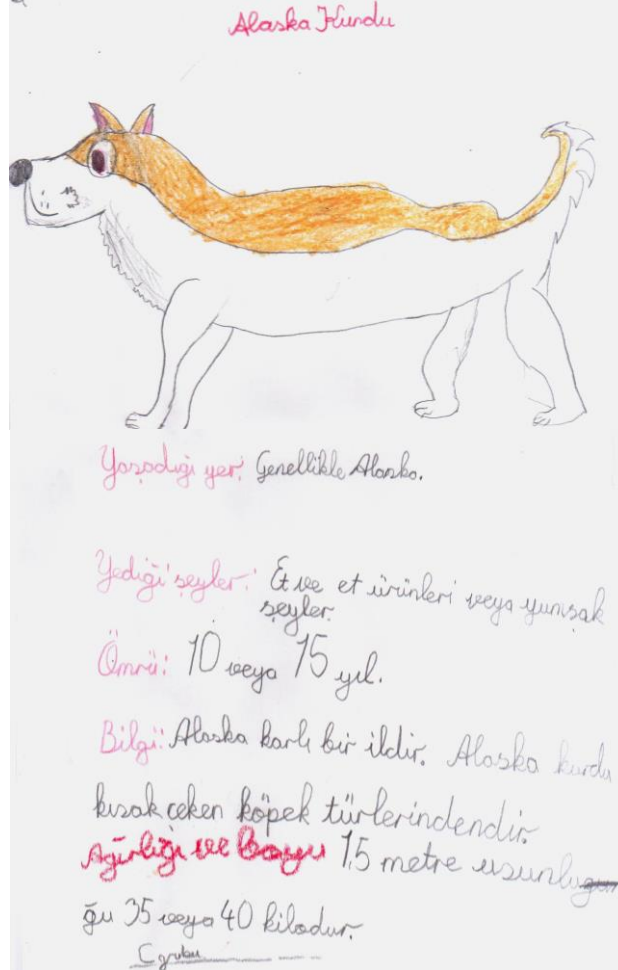 Alaska Kurdu
Yaşadığı yer: Genellikle Alaska.
Yediği şeyler: Et ve et ürünleri veya yumşak
şeyler.
Ömrü: 10 veya 15 yıl.
Bilgi: Alaska karlı bir ildir. Alaska kurdu
kızak çeken köpek türlerindendir.
Ağırlığı ve boyu 1,5 metre uzunluğ
ğu 35 veya 40 kilodur.
C grubu